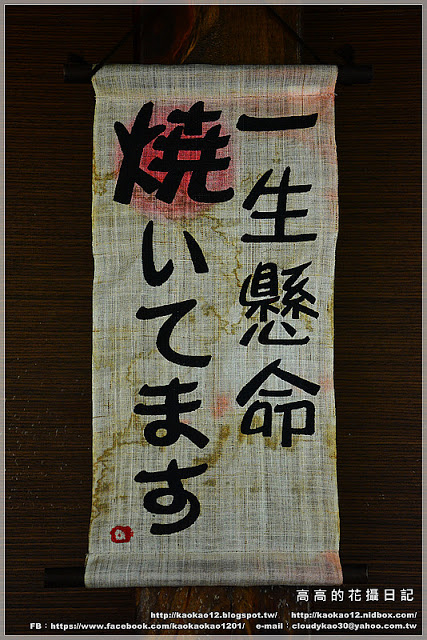 一生懸命
焼いてます
高高的花攝日記
http://kaokao12.blogspot.tw/ http://kaokao12.nidbox.com/
FB：https://www.facebook.com/kaokaokao1201/ e-mail：cloudykao30@yahoo.com.tw